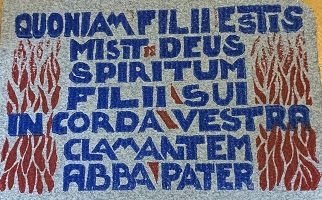 QUONIAM FILII ESTIS
MISIT DEUS
SPIRITUM
FILII SUI
IN CORDA VESTRA
CLAMANTEM
ABBA PATER